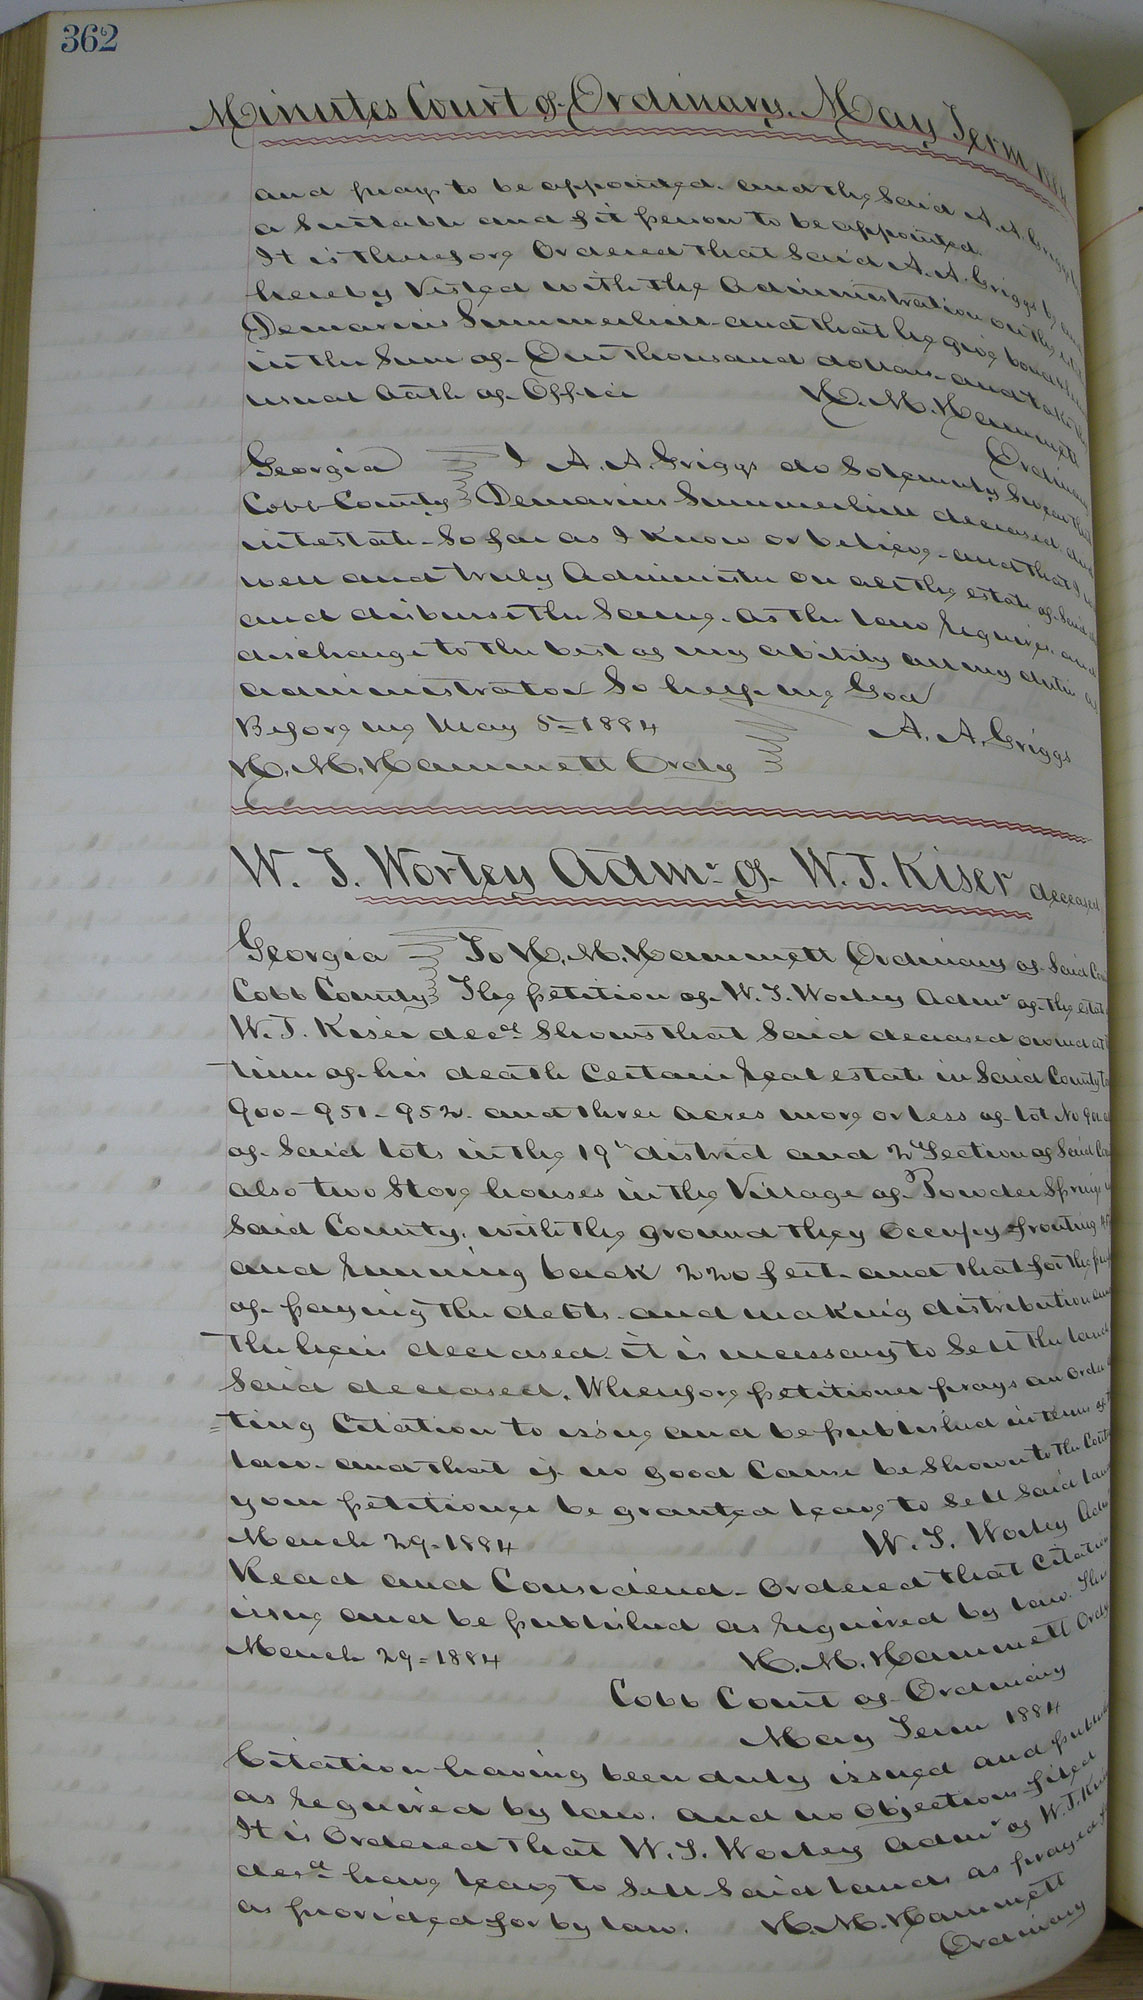 362
Minutes Court of Ordinary. May Term 1884
and prays to be appointed. and the said A. A. Griggs
a suitable and fit person to be appointed.
It is therefore Ordered that said A. A. Griggs be and
hereby Vested with the Administration on the
Demarius Summerhill and that he give bond
in the Sum of One thousand dollars and take the
usual Oath of Office H. M. Hammett
Ordinary
Georgia I A. A. Griggs do Solemnly Swear that
Cobb County Demarius Summerhill deceased died
intestate So far as I Know or believe and that I
well and truly Administer on all the estate of Said
and disburse the Same. as the law requires. and
discharge to the best of my ability all my duties as
administrator So help me God
Before me May 5= 1884 A. A. Griggs
H. M. Hammett Ordy
W. T. Worley Admr of W. J. Kiser deceased
Georgia To H. M. Hammett Ordinary of Said
Cobb County The petition of W. T. Worley Admr of the estate
W. J. Kiser decd Shows that Said deceased owned at
time of his death Certain Real estate in Said County
900 - 951 - 952. and three acres more or less of lot No
of Said lots in the 19th district and 2d Section of Said
also two Store houses in the Village of Powder Springs
Said County. with the ground they Occupy fronting
and Running back 220 feet. and that for the
of paying the debts. and making distribution
the heirs deceased. it is necessary to Sell the land
Said deceased. Wherefore petitioner prays an Order
ting Citation to issue and be published in terms of
law. and that if no good Cause be Shown to the
your petitioner be granted leave to Sell Said
March 29. 1884 W. T. Worley Admr
Read and Considered. Ordered that Citation
issue and be published as Required by law. This
March 29= 1884 H. M. Hammett Ordy
Cobb Court of Ordinary
May Term 1884
Citation having been duly issued and
as Required by law. and no Objections filed
It is Ordered that W. T. Worley Admr of W. J. Kiser
decd have leave to Sell Said lands as prayed
as provided for by law. H. M. Hammett
Ordinary